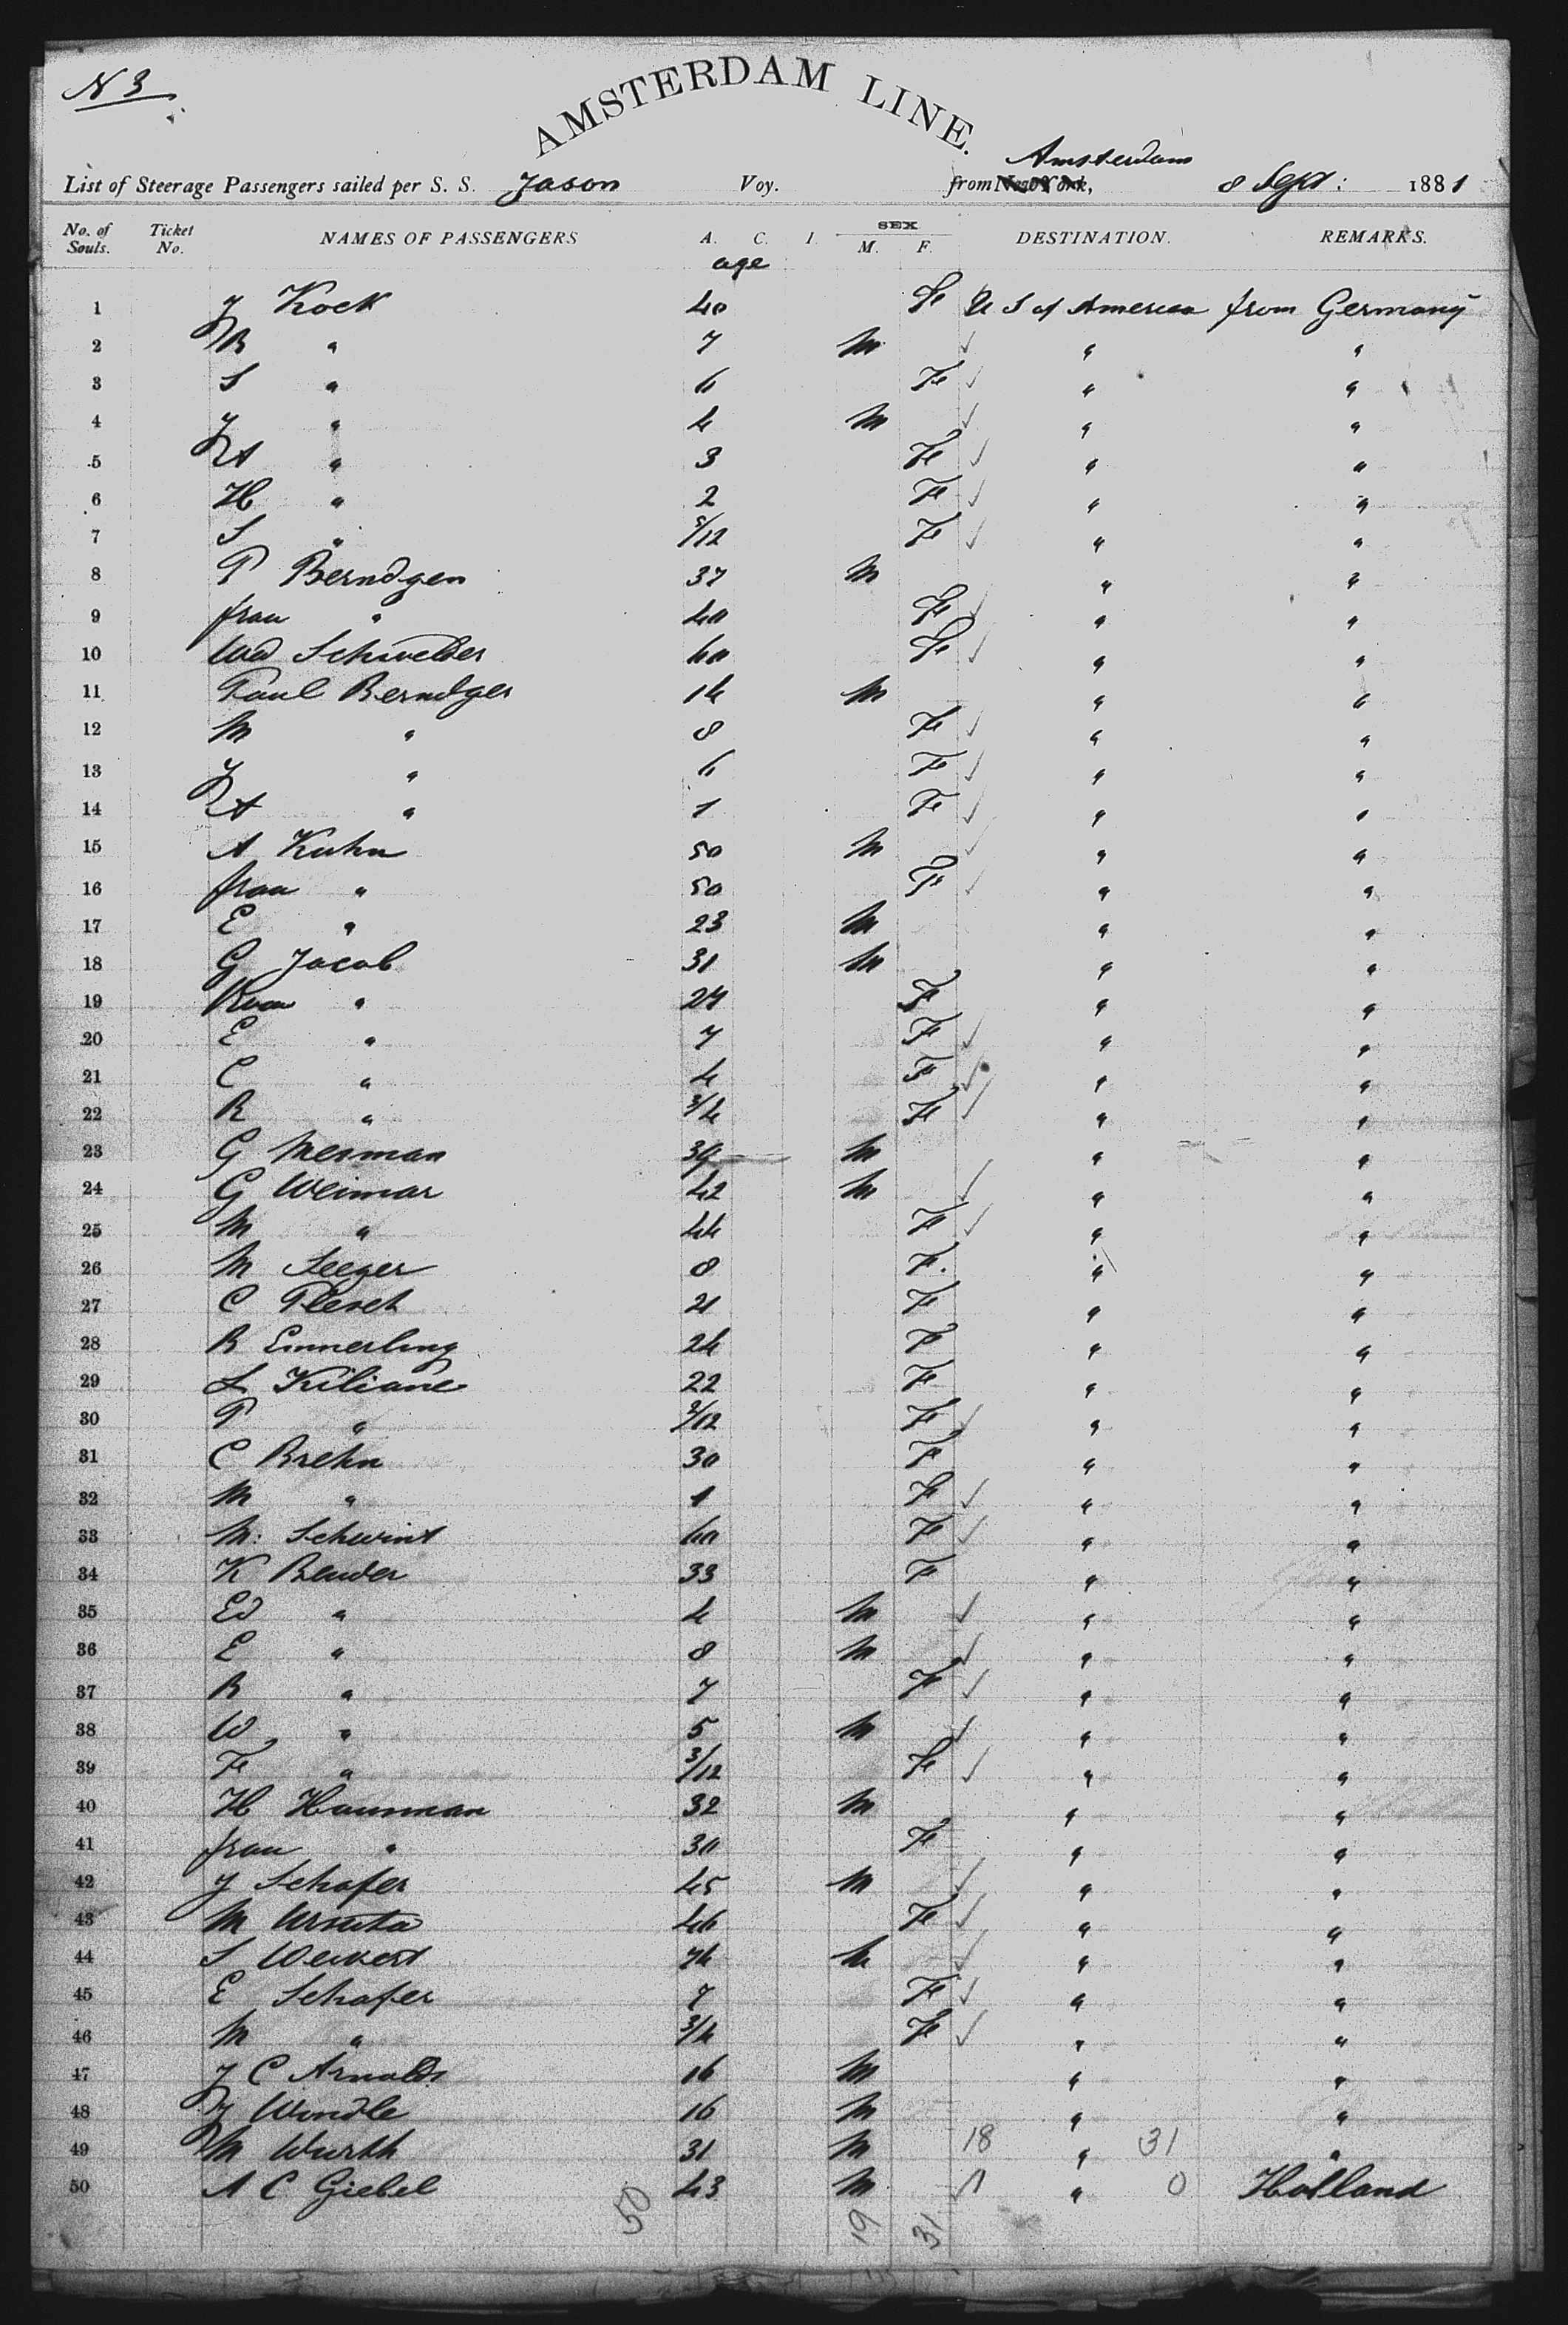 N 3
AMSTERDAM LINE.
Amsterdam
List of Steerage Passengers sailed per S. S. Jason Voy. from New York, 8 Sept: 1881
No. of Souls. Ticket No. NAMES OF PASSENGERS A. C. I. SEX M. F. DESTINATION. REMARKS.
age
1 J Kock 40 Fe U S of America from Germany
2 B " 7 M " "
3 S " 6 Fe " "
4 J " 4 M " "
5 A " 3 Fe " "
6 H " 2 Fe " "
7 S " 5/12 Fe " "
8 P Berndgen 37 M " "
9 frau " 40 Fe " "
10 Wed 60 Fe " "
11 Paul Berndgen 14 M " "
12 M " 8 Fe " "
13 J " 6 Fe " "
14 A " 1 Fe " "
15 A Kuhn 50 M " "
16 frau " 50 Fe " "
17 E " 23 M " "
18 G Jacob 31 M " "
19 " F " "
20 E " 7 F " "
21 C " 4 F " "
22 R " 3/4 Fe " "
23 G Mesman 39 M " "
24 G Weimar 42 M " "
25 M " 44 F " "
26 M Seeger 8 F. " "
27 C 21 F " "
28 B Emmerling 24 F " "
29 L Kiliane 22 F " "
30 P " F " "
31 C Brehn 30 F " "
32 M " 1 F " "
33 M: Schwint 60 F " "
34 K Bender 33 F " "
35 Ed " 4 M " "
36 E " 8 M " "
37 B " 7 Fe " "
38 W " 5 M " "
39 Fe " 3/12 Fe " "
40 H Hausman 32 M " "
41 frau " 30 Fe " "
42 J Schafer 45 M " "
43 M 46 Fe " "
44 S Weikert 74 M " "
45 E Schafer 7 Fe " "
46 M " 3/4 Fe " "
47 J C Arnolds 16 M " "
48 J Windle 16 M " "
49 M Wurth 31 M 18 " 31 "
50 A C Giebel 43 M 1 " 0 Holland
50 19 31